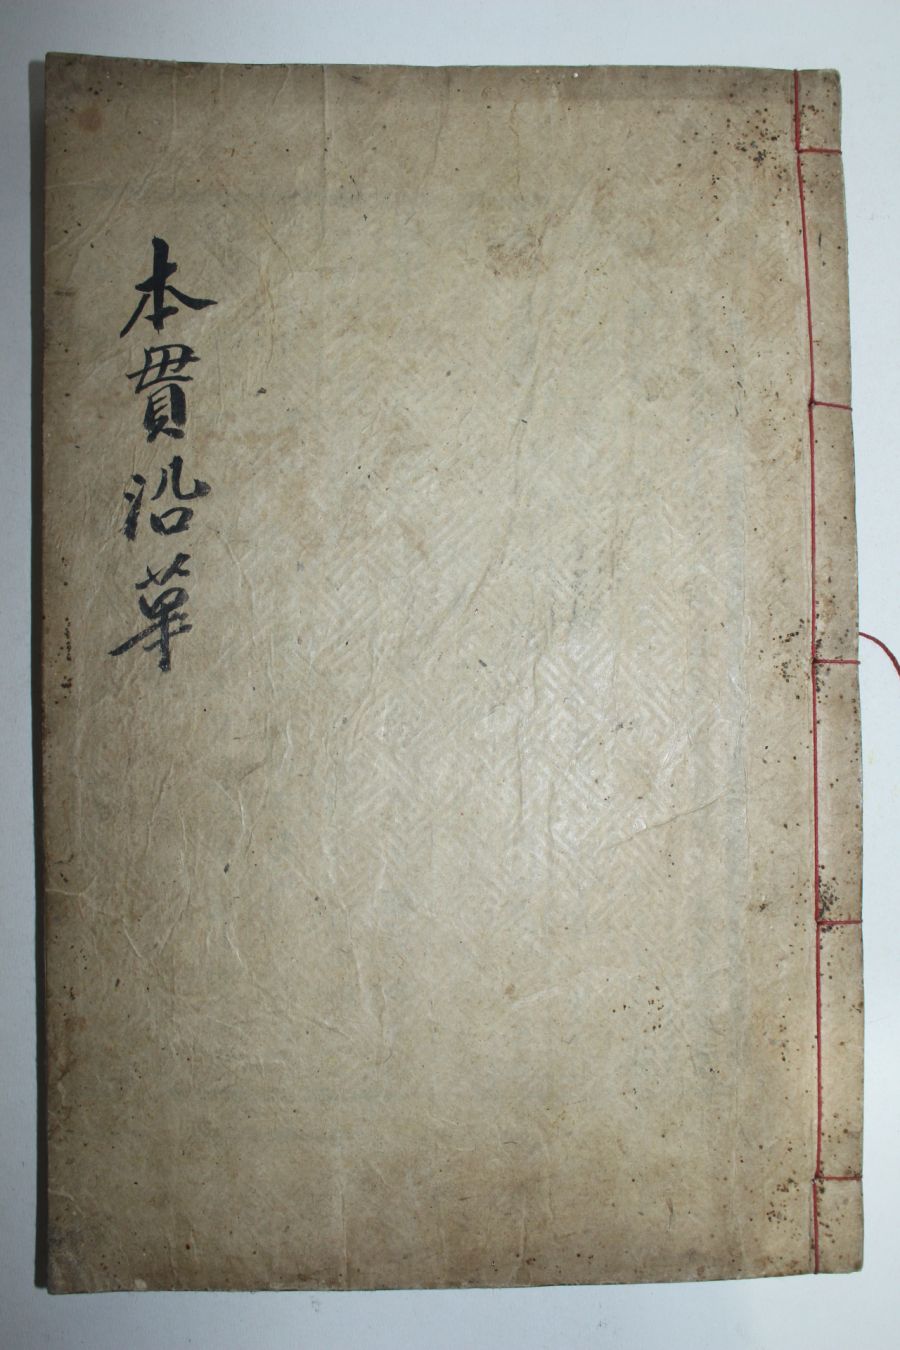 本貫沿革